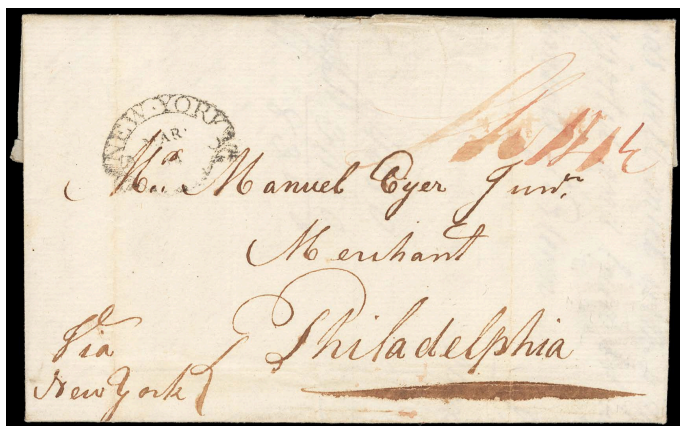 NEW-YORK
MAR
Mr. Manuel Eyer Junr.
Merchant
Philadelphia
Via
New York